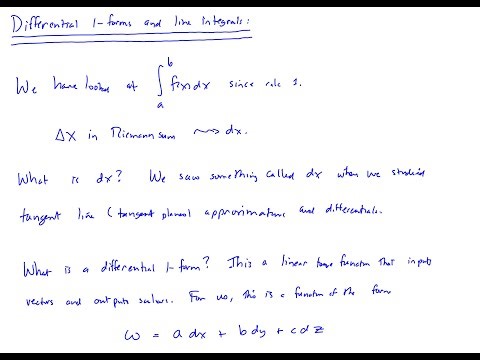 Differential 1-forms and line integrals:
We have looked at ∫_a^b f(x) dx since calc 1.
Δx in Riemann sum ⇝ dx.
What is dx? We saw something called dx when we studied
tangent line (tangent plane) approximations and differentials.
What is a differential 1-form? This a linear type function that inputs
vectors and outputs scalars. For us, this is a function of the form
ω = a dx + b dy + c d z